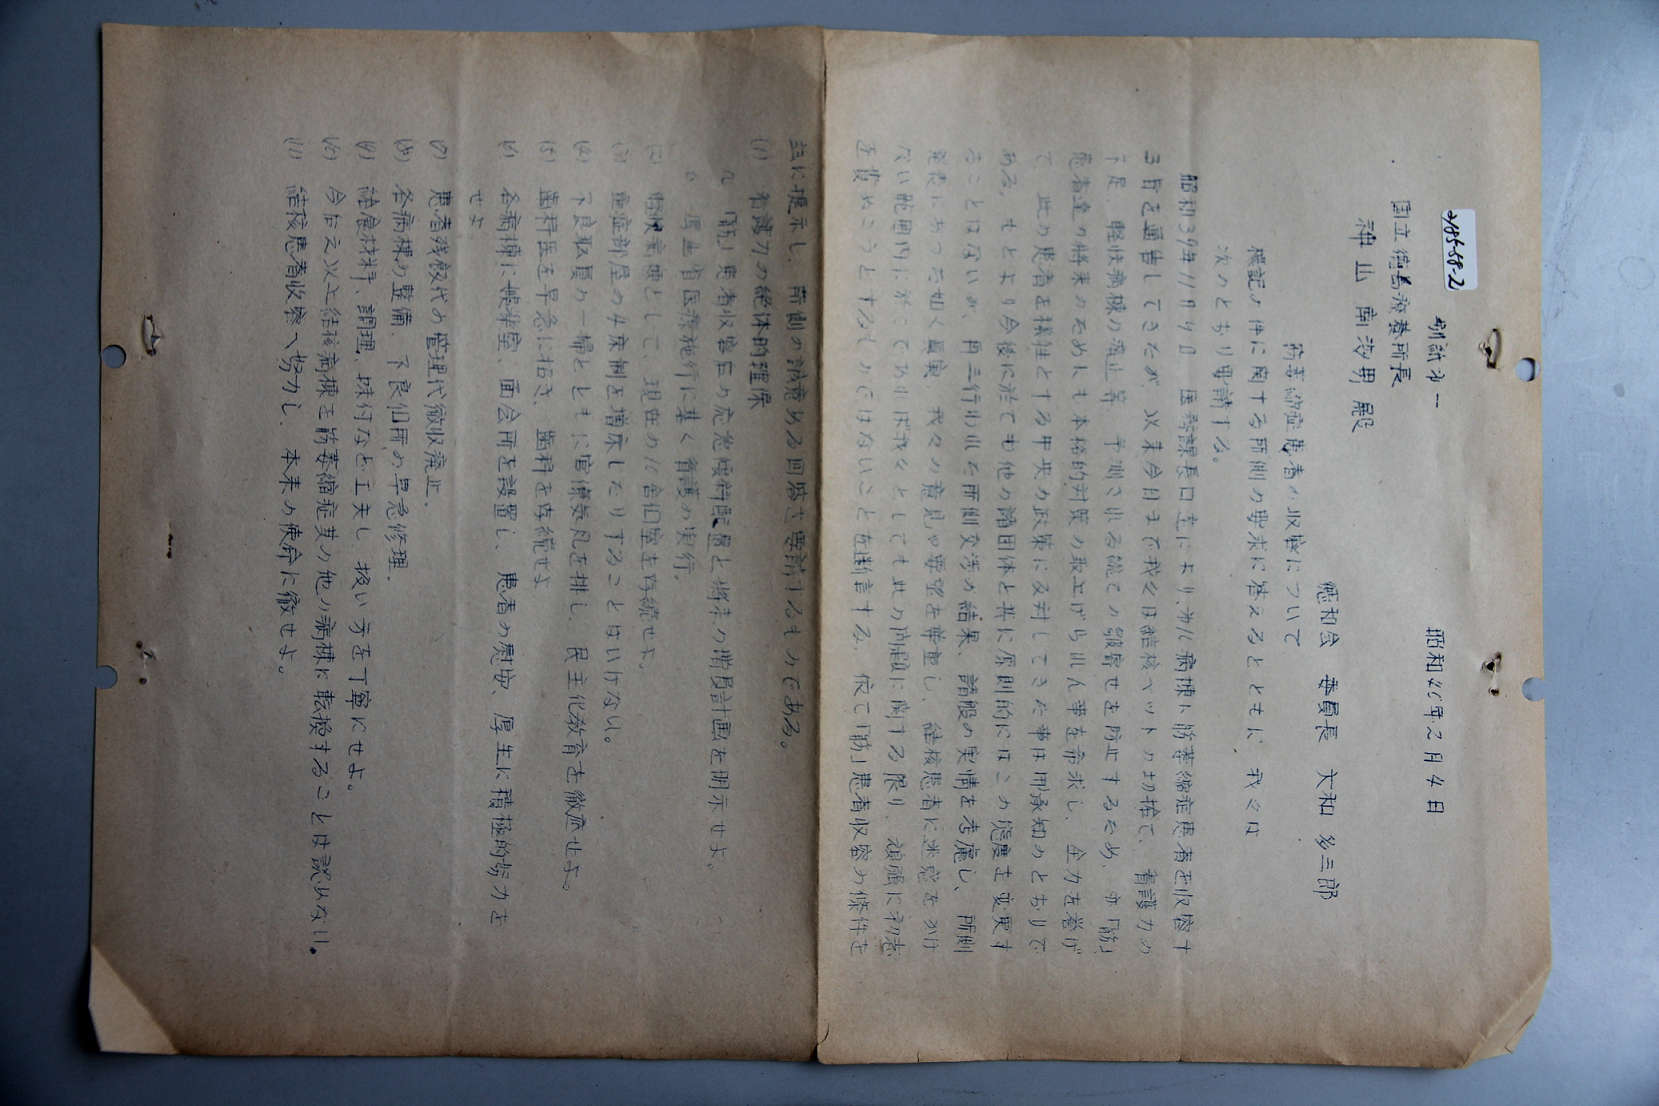 2185-58-2
別紙 1
昭和40年2月4日
国立徳島療養所長
神山 南海男 殿
徳和会 委員長 大和 多三郎
筋萎縮症患者の収容について
標記の件に関する所側の要求に答えるとともに、我々は
次のとおり要請する。
昭和39年11月9日 医務課長口達により、病棟に筋萎縮症患者を収容す
る旨を通告してきたが、以来今日まで我々は結核ベットの切捨て、看護力の
不足、軽快病棟の廃止等、予測される総ての皺寄せを防止するため、亦「筋」
患者達の将来のためにも本格的対策の取上げられん事を希求し、全力を挙げ
て、此の患者を犠牲とする中央の政策に反対してきた事は御承知のとおりで
ある。もとより今後に於ても他の諸団体と共に原則的にはこの態度を変更す
ることはないが、再三行われた所側交渉の結果、諸般の実情を考慮し、所側
発表にあった如く真実、我々の意見や要望を尊重し、結核患者に迷惑をかけ
ない範囲内に於てであれば我々としても此の問題に関する限り、頑強に初志
を貫ぬこうとするものではないことを断言する。依て「筋」患者収容の條件を
茲に提示し、所側の誠意ある回答を要請するものである。
(1) 看護力の絶体的確保
a 「筋」患者収容宙の応急傾斜配置と将来の増員計画を明示せよ。
b 厚生省医療施行に基く看護の実行。
(2) 軽快病棟として、現在の個室を存続せよ。
(3) 重症部屋の4床制を増床したりすることはいけない。
(4) 不良取員の一掃とともに官僚気風を排し、民主化教育を徹底せよ。
(5) 歯科医を早急に招き、歯科を存続せよ
(6) 各病棟に娯楽室、面会所を設置し、患者の慰安、厚生に積極的努力を
せよ
(7) 患者残殽代の管理代徴収廃止。
(8) 各病棟の整備、不良個所の早急修理。
(9) 給食材料、調理、味付などを工夫し 扱い方を丁寧にせよ。
(10) 今日之以上結核病棟を筋萎縮症其の他の病棟に転換することは認めない。
(11) 結核患者収容へ努力し、本来の使命に徹せよ。